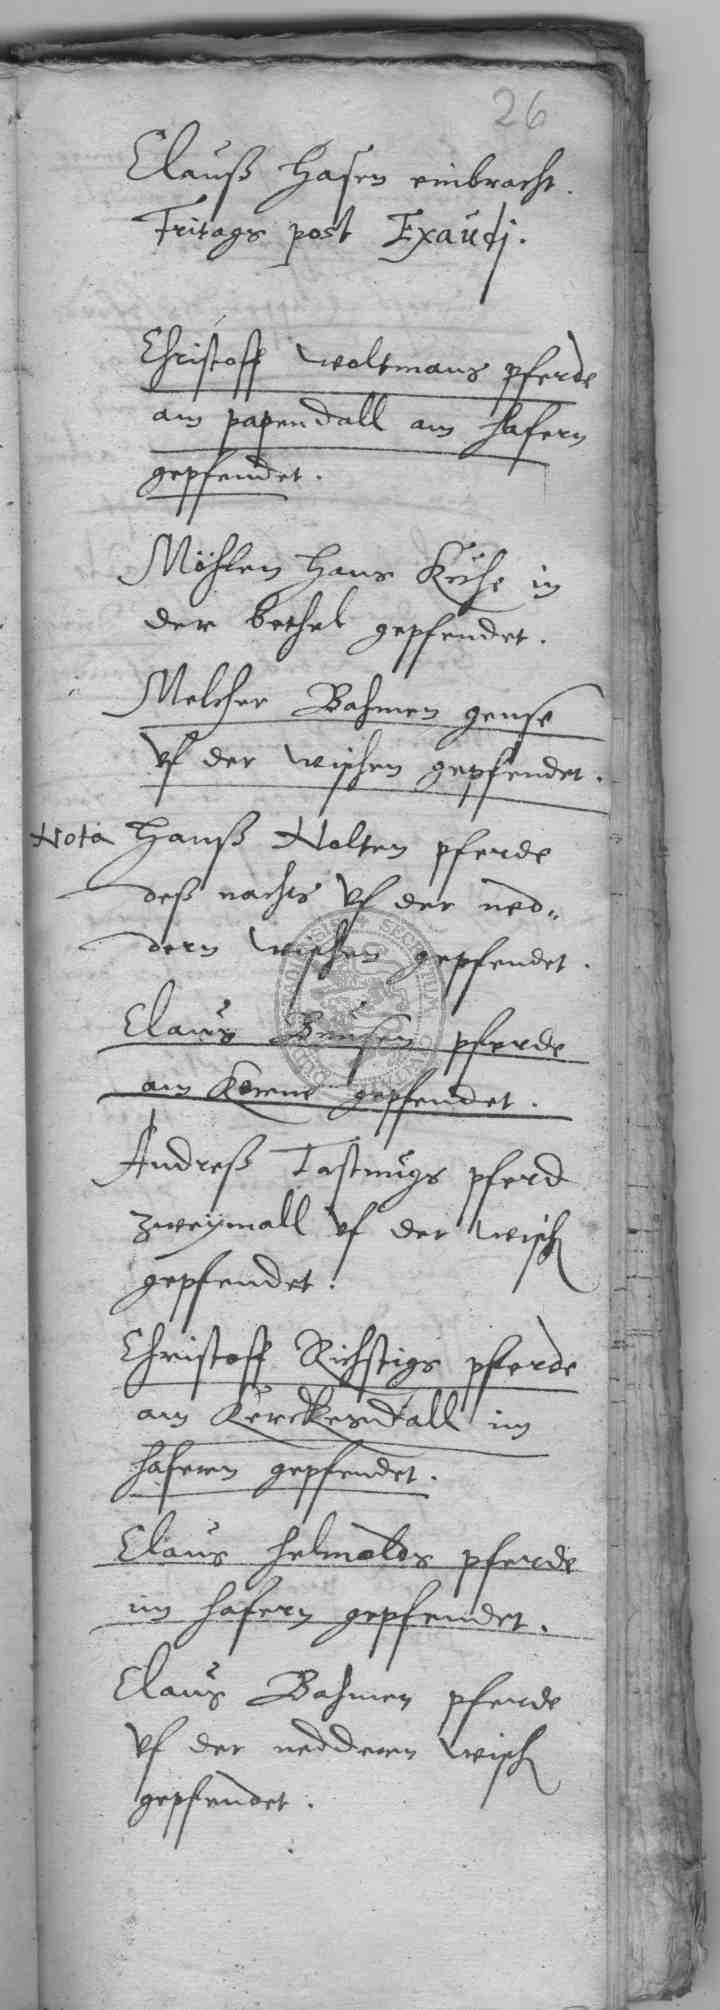 26
Clauß Hasen einbracht.
Fritags post Exaudj.
Christoff Woltmans pferde
am papendall am hafern
gepfendet.
Möhlen Hans Kühe in
der bethek gepfendet.
Melcher Bahmen gense
vf der wischen gepfendet.
Nota Hanß Nolten pferde
deß nachts vf der ned-
dern wischen gepfendet.
Claus Beusen pferde
am gepfendet.
Andreß Tastungs pferd
zweymall vf der wisch
gepfendet.
Christoff Richstigs pferde
am Kerckesdall im
hafern gepfendet.
Claus Helmolds pferde
im hafern gepfendet.
Claus Bahmen pferde
vf der nedderen wisch
gepfendet.